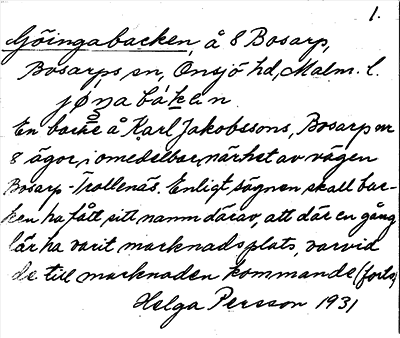 1.
Göingabacken, å 8 Bosarp,
Bosarps sn, Onsjö hd, Malm. l.
En backe å Karl Jakobssons, Bosarp nr
8 ägor, i omedelbar närhet av vägen
Bosarp-Trollenäs. Enligt sägnen skall bac-
ken ha fått sitt namn därav, att där en gång
lär ha varit marknadsplats, varvid
de till marknaden kommande (forts)
Helga Persson 1931